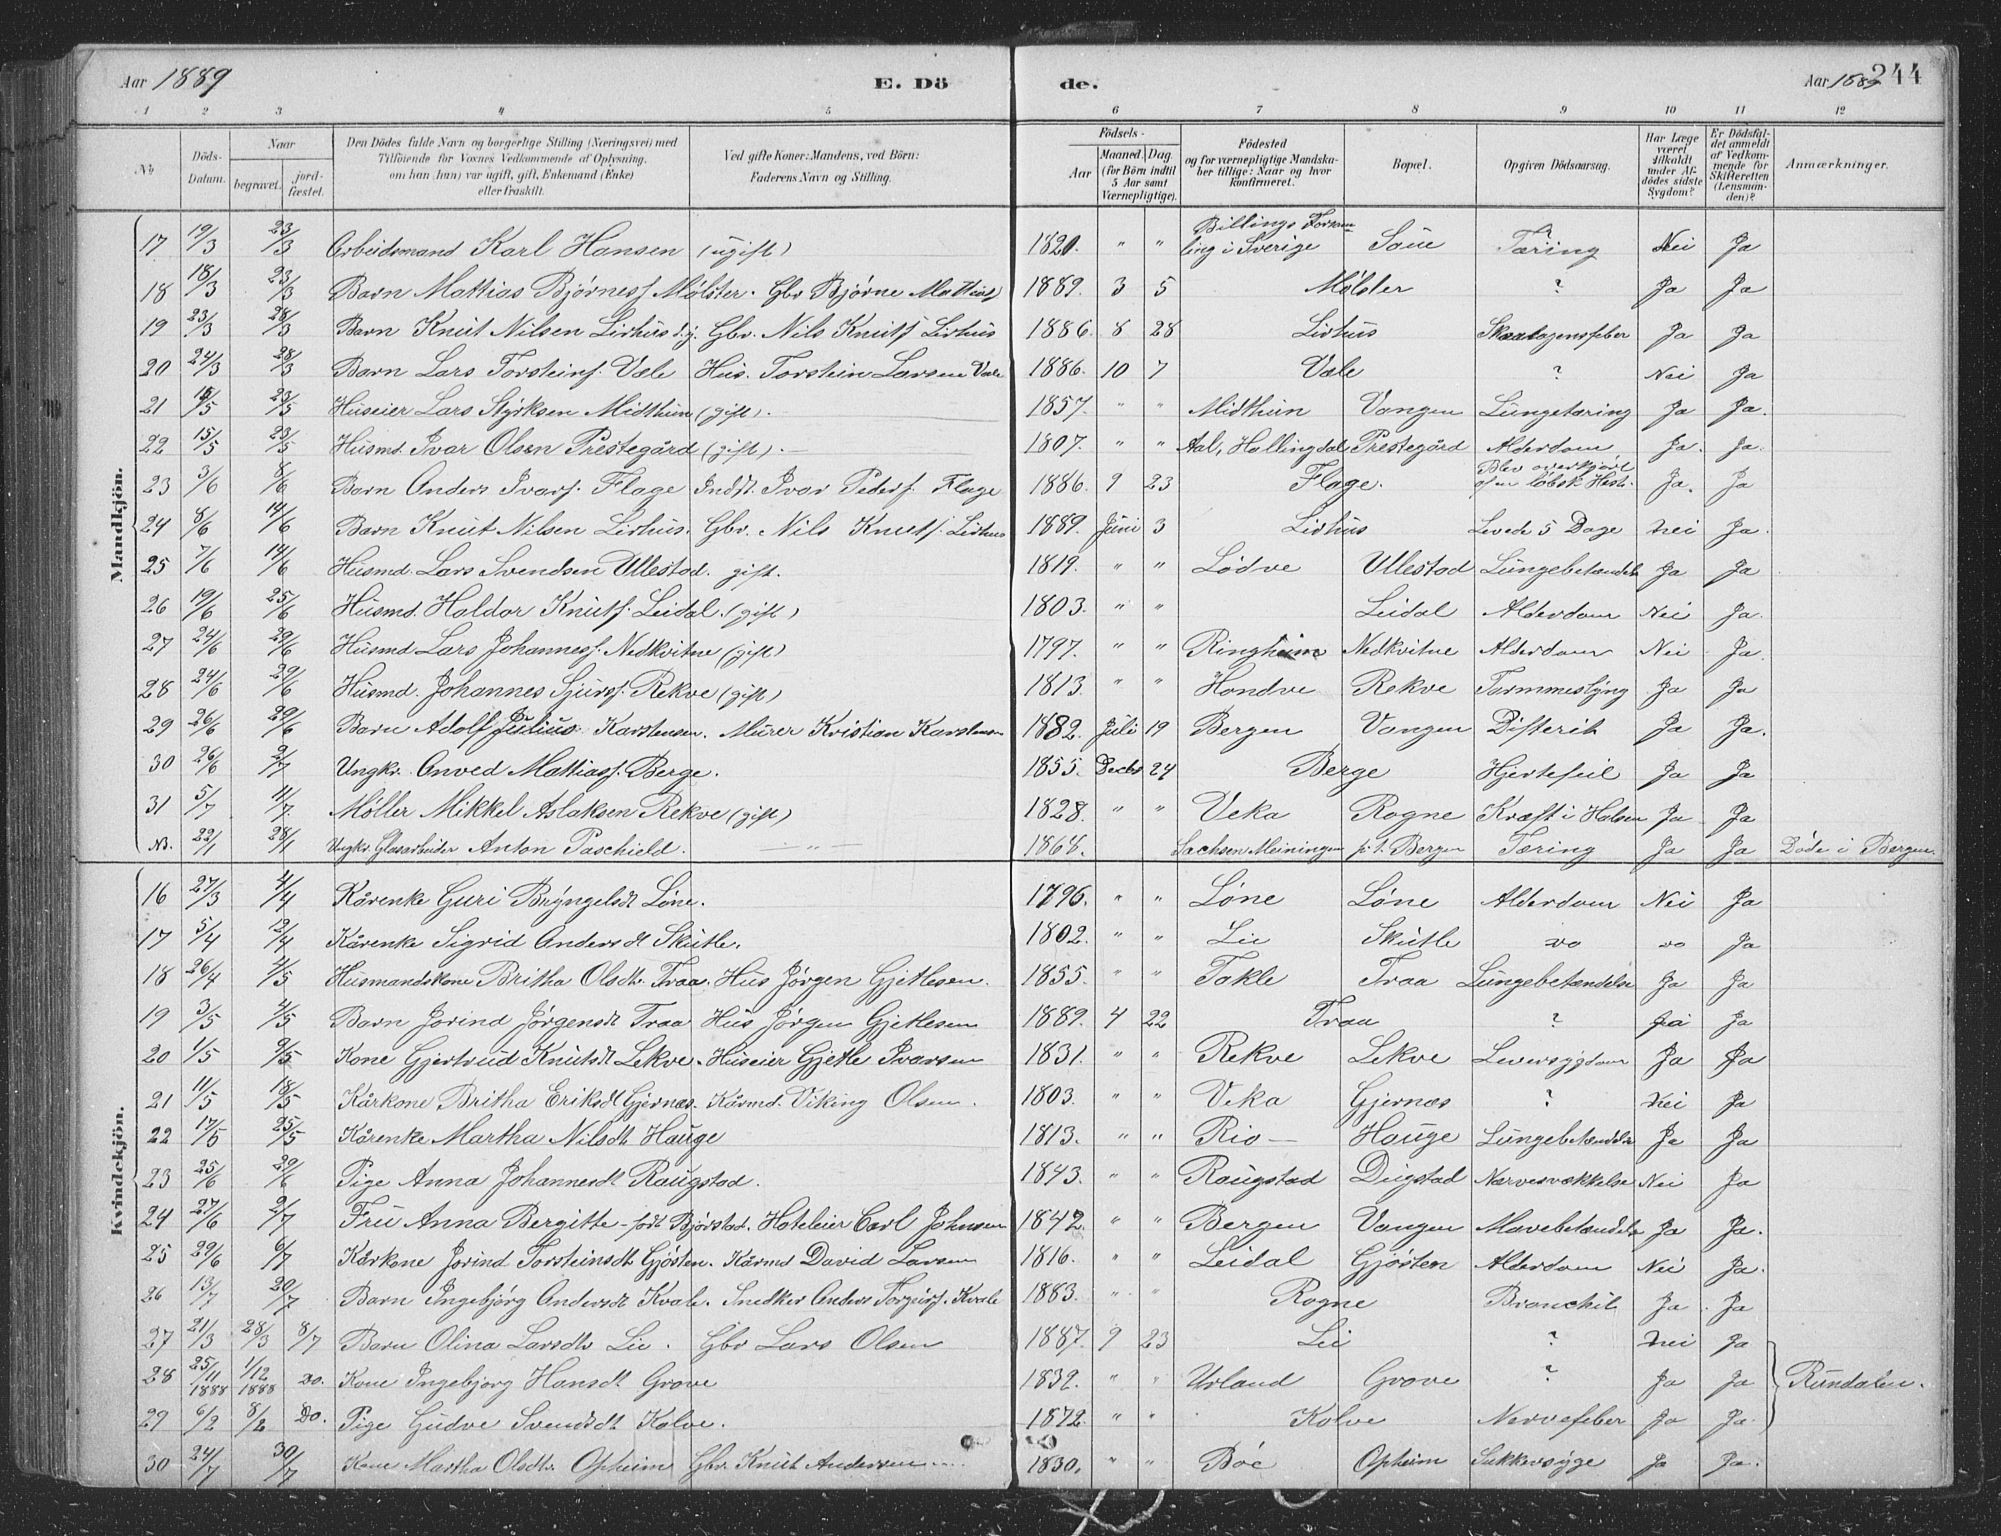 Aar 1889 E. Dö de. Aar 1889 244
1 2 3 4 5 6 7 8 9 10 11 12
No Döds-Datum. Naar begravet. jord-fæstet. Den Dödes fulde Navn og borgerlige Stilling (Næringsvei) med Tilföiende for Voxnes Vedkommende af Oplysning, om han (hun) var ugift, gift, Enkemand (Enke) eller fraskilt. Ved gifte Koner: Mandens, ved Börn: Faderens Navn og Stilling. Födsels- Aar Maaned. Dag. (for Börn indtil 5 Aar samt Værnepligtige). Födested og for værnepligtige Mandskaber tillige: Naar og hvor konfirmeret. Bopæl. Opgiven Dödsaarsag. Har Læge været tilkaldt under Afdödes sidste Sygdom? Er Dödsfaldet anmeldt af Vedkommende for Skifteretten (Lensmanden)? Anmærkninger.
Mandkjön.
17 19/3 23/3 Arbeidsmand Karl Hansen (ugift) 1820. " " Billings i Sverige Saue Tæring ? Nei Ja
18 18/3 23/3 Barn Mattias Bjørness Mølster. Gbr Bjørne Mattiass 1889. 3 5 Mølster ? Ja Ja
19 23/3 28/3 Barn Knut Nilsen Lirhus d.y. Gbr. Nils Knuts. Lirhus 1886. 8 28 Lirhus Skarlagensfeber Ja Ja
20 24/3 28/3 Barn Lars Torsteins. Væle Hus. Torstein Larsen Væle 1886. 10 7 Væle ? Nei Ja
21 /5 23/5 Huseier Lars Styrksen Midthun (gift). 1857. " " Midthun Vangen Lungetæring Ja Ja.
22 15/5 23/5 Husmd. Ivar Olsen Prestegård (gift). 1807. " " Aal, Hallingdal Prestegård Alderdom Ja. Ja.
23 3/6 8/6 Barn Anders Ivars. Flage Indst. Ivar Peders. Flage 1886. 9 23 Flage. Blev overkjørt af en løbsk Hest. Ja. Ja
24 8/6 14/6 Barn Knut Nilsen Lirhus. Gbr. Nils Knuts. Lirhus 1889. Juni 3 Lirhus Levede 5 Dage Nei Ja.
25 7/6 14/6 Husmd. Lars Svendsen Ullestad. gift. 1819. " " Lødve Ullestad Lungebetændelse Ja Ja
26 19/6 25/6 Husmd. Haldor Knuts. Leidal. (gift) 1803. " " Leidal Alderdom Nei Ja.
27 24/6 29/6 Husmd Lars Johanness. Nedkvitne (gift) 1797. " " Ringheim Nedkvitne Alderdom Nei Ja.
28 24/6 29/6 Husmd. Johannes Sjurss. Rekve (gift) 1813. " " Hondve Rekve Tarmmeslyng Ja Ja
29 26/6 29/6 Barn Adolf Julius Karstensen. Murer Kristian Karstensen 1882. Juli 19 Bergen Vangen Difterit Ja Ja.
30 26/6 2/7 Ungkr. Anved Mattiass. Berge. 1855. Decbr 24 Berge Hjertefeil Ja Ja
31 5/7 11/7. Møller Mikkel Aslaksen Rekve (gift) 1828. " " Veka Rogne Kræft i Halsen Ja Ja
NB. 22/1 28/1 Ungkr. Glasarbeider Anton Paschield. — " — 1868. Sachsen Meiningen p.t. Bergen Tæring Ja Ja Døde i Bergen.
Kvindekjön.
16 27/3 4/4 Kårenke Guri Bryngelsdt Løne. 1796. " " Løne Løne Alderdom Nei Ja
17 5/4 12/4 Kårenke Sigrid Andersdt Skutle. 1802. " " Lie Skutle do do Ja
18 26/4 4/5 Husmandskone Britha Olsdtr. Traa. Hus Jørgen Gjetlesen. 1855. " " Takle Traa Lungebetændelse Ja Ja
19 3/5 4/5 Barn Jorind Jørgensdt Traa Hus Jørgen Gjetlesen 1889. 4 22 Traa ? Ja
20 1/5 9/5 Kone Gjertrud Knutsdt Lekve. Huseier Gjetle Ivarsen 1831. " " Rekve Lekve Leversygdom Ja Ja
21 11/5 18/5 Kårkone Britha Eriksdt Gjernæs. Kårmd. Viking Olsen. 1803. " " Veka Gjernæs ? Nei Ja
22 17/5 25/5 Kårenke Martha Nilsdt Hauge 1813. " " Rio — Hauge Lungebetændelse Ja Ja
23 25/6 29/6 Pige Anna Johannesdt Raugstad. 1843. " " Raugstad Dugstad Nærvesvækkelse Nei Ja
24 27/6 2/7 Fru Anna Bergitte — født Bjørstad. Hoteleier Carl Johnsen 1842. " " Bergen Vangen Mavebetændelse Ja Ja.
25 29/6 6/7 Kårkone Jorind Torsteinsdt Gjøsten. Kårmd David Larsen 1816. " " Leidal Gjøsten Alderdom Nei Ja.
26 13/7 20/7 Barn Ingebjørg Andersdt Kvale. Snedker Anders Torgeirs. Kvale 1883. " " Rogne Bronchit Ja Ja
27 21/3 28/3 8/7 Barn Olina Larsdtr Lie. Gbr Lars Olsen 1887. 9 23 Lie ? Nei Ja
28 25/11 1888 1/12 1888 Do. Kone Ingebjørg Hansdt Grove 1832. " " Urland Grove ? Ja Ja Rundalen.
29 6/2 8/2 Do. Pige Gudve Svendsdt Kolve. 1872. " " Kolve Nervefeber Ja Ja.
30 24/7 30/7 Kone Martha Olsdtr Opheim Gbr. Knut Andersen 1830. " " Bøe Opheim Sukkersyge Ja Ja.